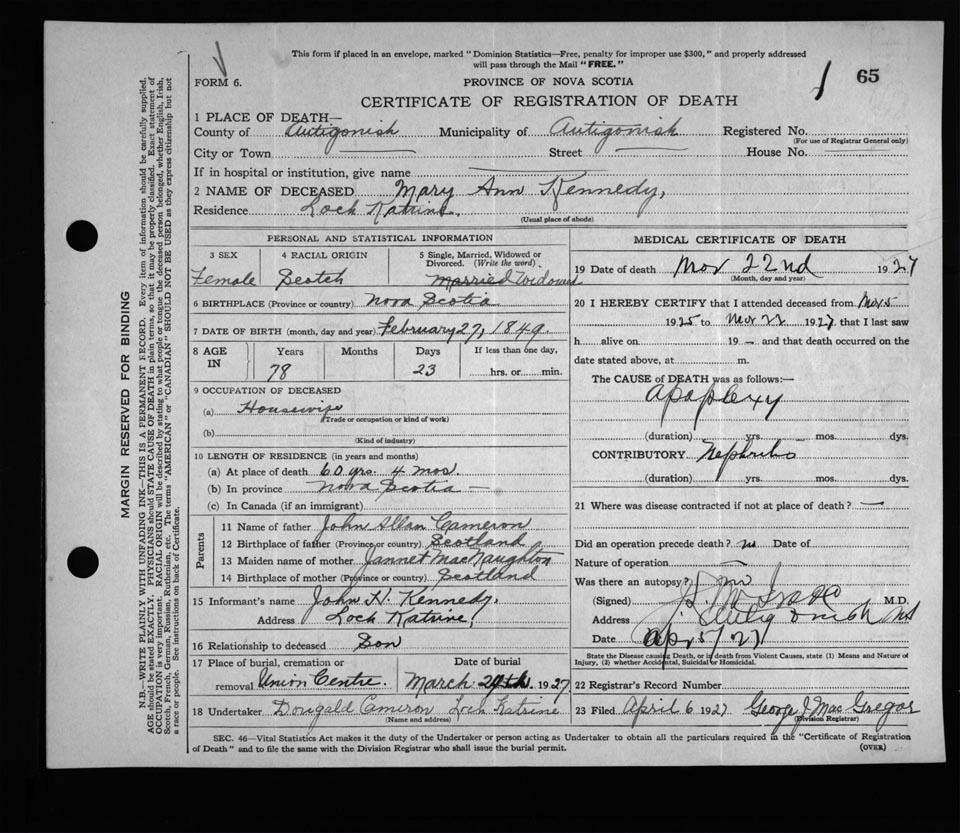 This form if placed in an envelope, marked "Dominion Statistics—Free, penalty for improper use $300," and properly addressed
will pass through the Mail "FREE."
FORM 6.
PROVINCE OF NOVA SCOTIA
65
CERTIFICATE OF REGISTRATION OF DEATH
1 PLACE OF DEATH—
County of Antigonish Municipality of Antigonish Registered No.
(For use of Registrar General only)
City or Town Street House No.
If in hospital or institution, give name
2 NAME OF DECEASED Mary Ann Kennedy,
Residence Loch Katrine.
(Usual place of abode)
PERSONAL AND STATISTICAL INFORMATION
3 SEX 4 RACIAL ORIGIN 5 Single, Married, Widowed or Divorced. (Write the word).
Female Scotch Married Widowed
6 BIRTHPLACE (Province or country) Nova Scotia
7 DATE OF BIRTH (month, day and year) February 27, 1849.
8 AGE IN Years Months Days If less than one day,
78 23 hrs. or min.
9 OCCUPATION OF DECEASED
(a) Housewife
(Trade or occupation or kind of work)
(b)
(Kind of industry)
10 LENGTH OF RESIDENCE (in years and months)
(a) At place of death 60 yrs. 4 mos.
(b) In province Nova Scotia —
(c) In Canada (if an immigrant)
Parents
11 Name of father John Allan Cameron
12 Birthplace of father (Province or country) Scotland
13 Maiden name of mother Jannet MacNaughton
14 Birthplace of mother (Province or country) Scotland
15 Informant's name John H. Kennedy.
Address Loch Katrine,
16 Relationship to deceased Son
17 Place of burial, cremation or Date of burial
removal Union Centre. March 24th. 1927
18 Undertaker Dougald Cameron Loch Katrine
(Name and address)
MEDICAL CERTIFICATE OF DEATH
19 Date of death Mar 22nd 1927
(Month, day and year)
20 I HEREBY CERTIFY that I attended deceased from Nov 5
1925 to Mar 22 1927, that I last saw
h alive on 19 — and that death occurred on the
date stated above, at m.
The CAUSE of DEATH was as follows:—
Apoplexy
(duration) yrs. mos. dys.
CONTRIBUTORY Nephritis
(duration) yrs. mos. dys.
21 Where was disease contracted if not at place of death?
Did an operation precede death? no Date of
Nature of operation
Was there an autopsy? no
(Signed) M.D.
Address Antigonish NS
Date Apr 5/27
State the Disease causing Death, or in death from Violent Causes, state (1) Means and Nature of
Injury, (2) whether Accidental, Suicidal or Homicidal.
22 Registrar's Record Number
23 Filed April 6 1927 George J MacGregor
(Division Registrar)
SEC. 46—Vital Statistics Act makes it the duty of the Undertaker or person acting as Undertaker to obtain all the particulars required in the "Certificate of Registration
of Death" and to file the same with the Division Registrar who shall issue the burial permit.
(OVER)
MARGIN RESERVED FOR BINDING
N.B.—WRITE PLAINLY WITH UNFADING INK—THIS IS A PERMANENT RECORD. Every item of information should be carefully supplied.
AGE should be stated EXACTLY. PHYSICIANS should STATE CAUSE OF DEATH in plain terms, so that it may be properly classified. Exact statement of
OCCUPATION is very important. RACIAL ORIGIN will be described by stating to what people or tongue the deceased person belonged, whether English, Irish,
Scotch, French, German, Russian, Ruthenian, etc. The terms "AMERICAN" or "CANADIAN" SHOULD NOT BE USED as they express citizenship but not
a race or people. See instructions on back of Certificate.